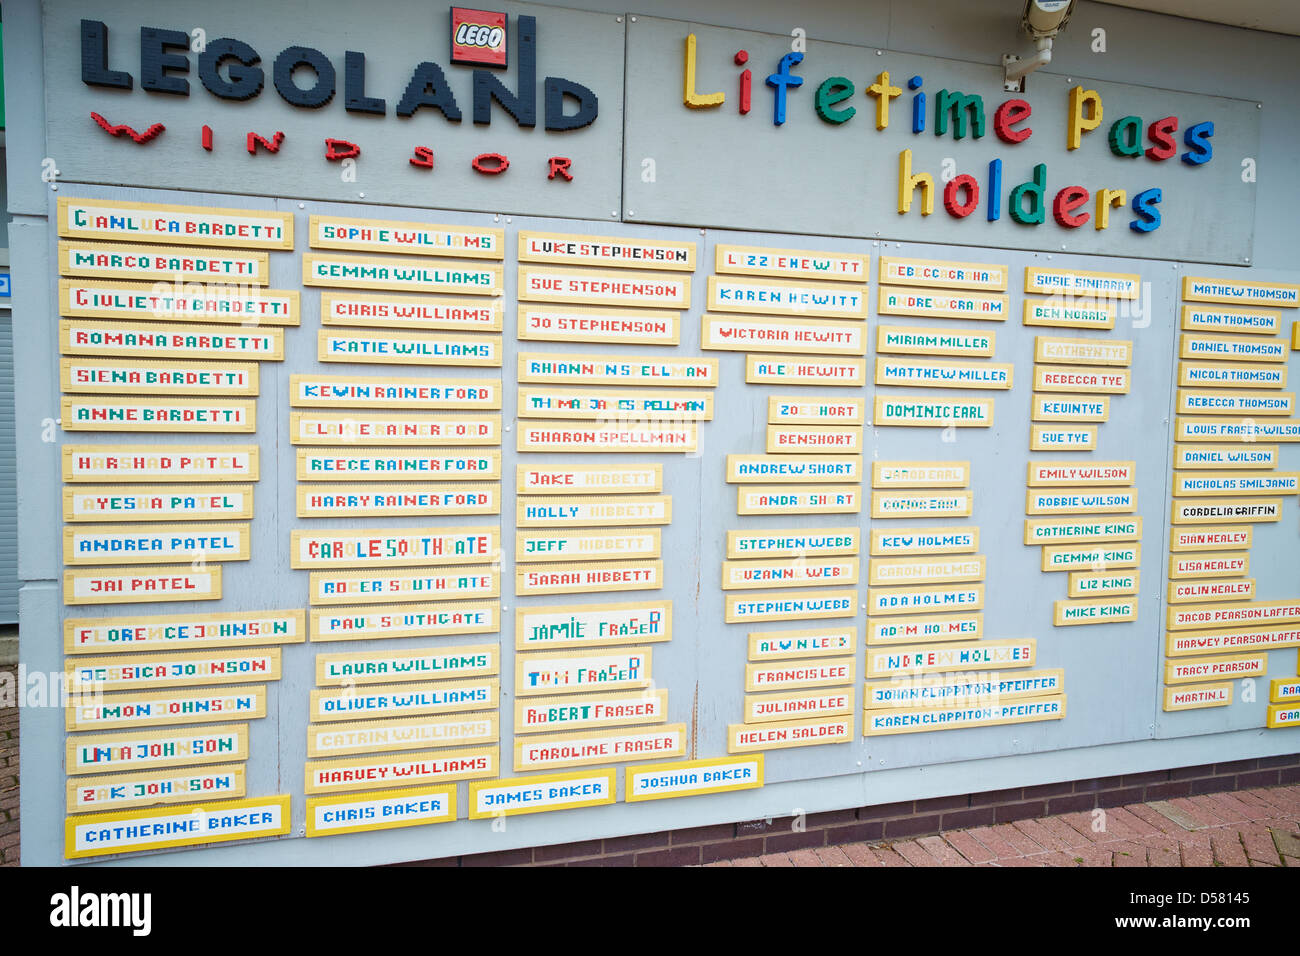 LEGOLAND
LEGO
WINDSOR
Lifetime Pass
holders
GIANLUCA BARDETTI
MARCO BARDETTI
GIULIETTA BARDETTI
ROMANA BARDETTI
SIENA BARDETTI
ANNE BARDETTI
HARSHAD PATEL
AYESHA PATEL
ANDREA PATEL
JAI PATEL
FLORENCE JOHNSON
JESSICA JOHNSON
SIMON JOHNSON
LINDA JOHNSON
ZAK JOHNSON
CATHERINE BAKER
SOPHIE WILLIAMS
GEMMA WILLIAMS
CHRIS WILLIAMS
KATIE WILLIAMS
KEVIN RAINER FORD
ELAINE RAINER FORD
REECE RAINER FORD
HARRY RAINER FORD
CAROLE SOUTHGATE
ROGER SOUTHGATE
PAUL SOUTHGATE
LAURA WILLIAMS
OLIVER WILLIAMS
CATRIN WILLIAMS
HARVEY WILLIAMS
CHRIS BAKER
LUKE STEPHENSON
SUE STEPHENSON
JO STEPHENSON
RHIANNON SPELLMAN
THOMAS JAMES SPELLMAN
SHARON SPELLMAN
JAKE HIBBETT
HOLLY HIBBETT
JEFF HIBBETT
SARAH HIBBETT
JAMIE FRASER
TOM FRASER
ROBERT FRASER
CAROLINE FRASER
JAMES BAKER
JOSHUA BAKER
LIZZIE HEWITT
KAREN HEWITT
VICTORIA HEWITT
ALEX HEWITT
ZOE SHORT
BEN SHORT
ANDREW SHORT
SANDRA SHORT
STEPHEN WEBB
SUZANNE WEBB
STEPHEN WEBB
ALVIN LEED
FRANCIS LEE
JULIANA LEE
HELEN SALDER
REBECCA GRAHAM
ANDREW GRAHAM
MIRIAM MILLER
MATTHEW MILLER
DOMINIC EARL
JAROD EARL
CONOR EARL
KEV HOLMES
CARON HOLMES
ADA HOLMES
ADAM HOLMES
ANDREW HOLMES
JOHAN CLAPPITON-PFEIFFER
KAREN CLAPPITON-PFEIFFER
SUSIE SINHARAY
BEN NORRIS
KATHRYN TYE
REBECCA TYE
KEVIN TYE
SUE TYE
EMILY WILSON
ROBBIE WILSON
CATHERINE KING
GEMMA KING
LIZ KING
MIKE KING
MATHEW THOMSON
ALAN THOMSON
DANIEL THOMSON
NICOLA THOMSON
REBECCA THOMSON
LOUIS FRASER-WILSO
DANIEL WILSON
NICHOLAS SMILJANIC
CORDELIA GRIFFIN
SIAN HEALEY
LISA HEALEY
COLIN HEALEY
JACOB PEARSON LAFFER
HARVEY PEARSON LAFFE
TRACY PEARSON
MARTIN L
RAA
GAA
alamy
Image ID: D58145
www.alamy.com